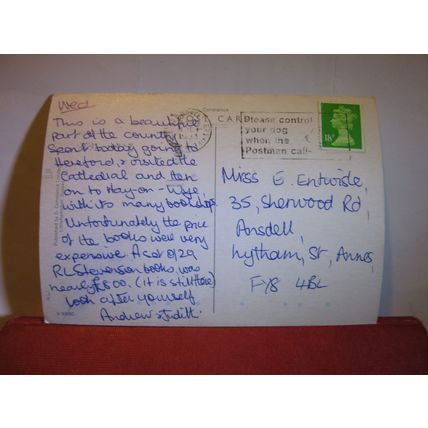 Wed
This is a beautiful
part of the country
Spent today going to
Hereford, & visited the
Cathedral and then
on to Hay-on-Wye,
with its many bookshops.
Unfortunately the price
of the books were very
expensive A set of 29
RL Stevenson books, was
nearly £500. (it is still there)
Look after yourself
Andrew & Edith.
CARD
Please control
your dog
when the
Postman calls
18P
Miss E. Entwistle,
35, Sherwood Rd,
Ansdell
Lytham, St, Annes
FY8 4BL